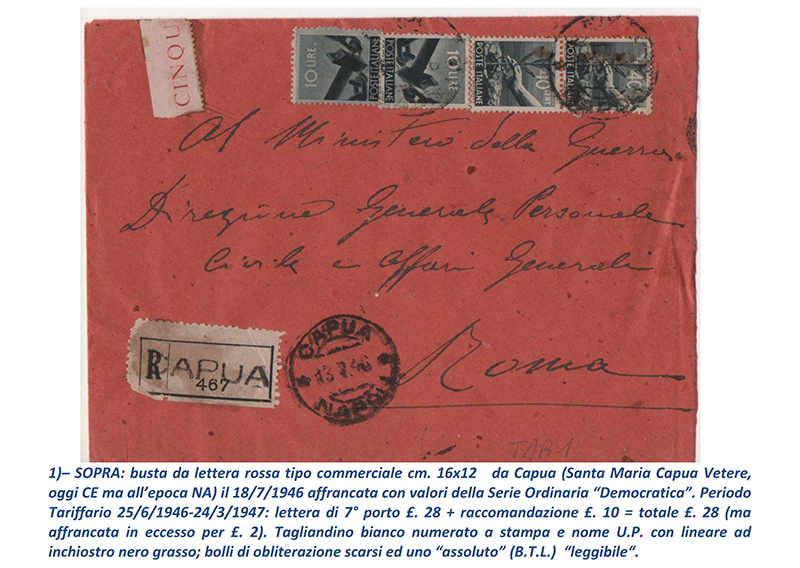 CINQU
10 LIRE
POSTE ITALIANE
10 LIRE
POSTE ITALIANE
40 CENT
POSTE ITALIANE
40
POSTE ITALIANE
Al Ministero della Guerra
Direzione Generale Personale
Civile e Affari Generali
Roma
R CAPUA
467
CAPUA
NAPOLI
TAB 1
1)– SOPRA: busta da lettera rossa tipo commerciale cm. 16x12 da Capua (Santa Maria Capua Vetere,
oggi CE ma all’epoca NA) il 18/7/1946 affrancata con valori della Serie Ordinaria “Democratica”. Periodo
Tariffario 25/6/1946-24/3/1947: lettera di 7° porto £. 28 + raccomandazione £. 10 = totale £. 28 (ma
affrancata in eccesso per £. 2). Tagliandino bianco numerato a stampa e nome U.P. con lineare ad
inchiostro nero grasso; bolli di obliterazione scarsi ed uno “assoluto” (B.T.L.) “leggibile“.